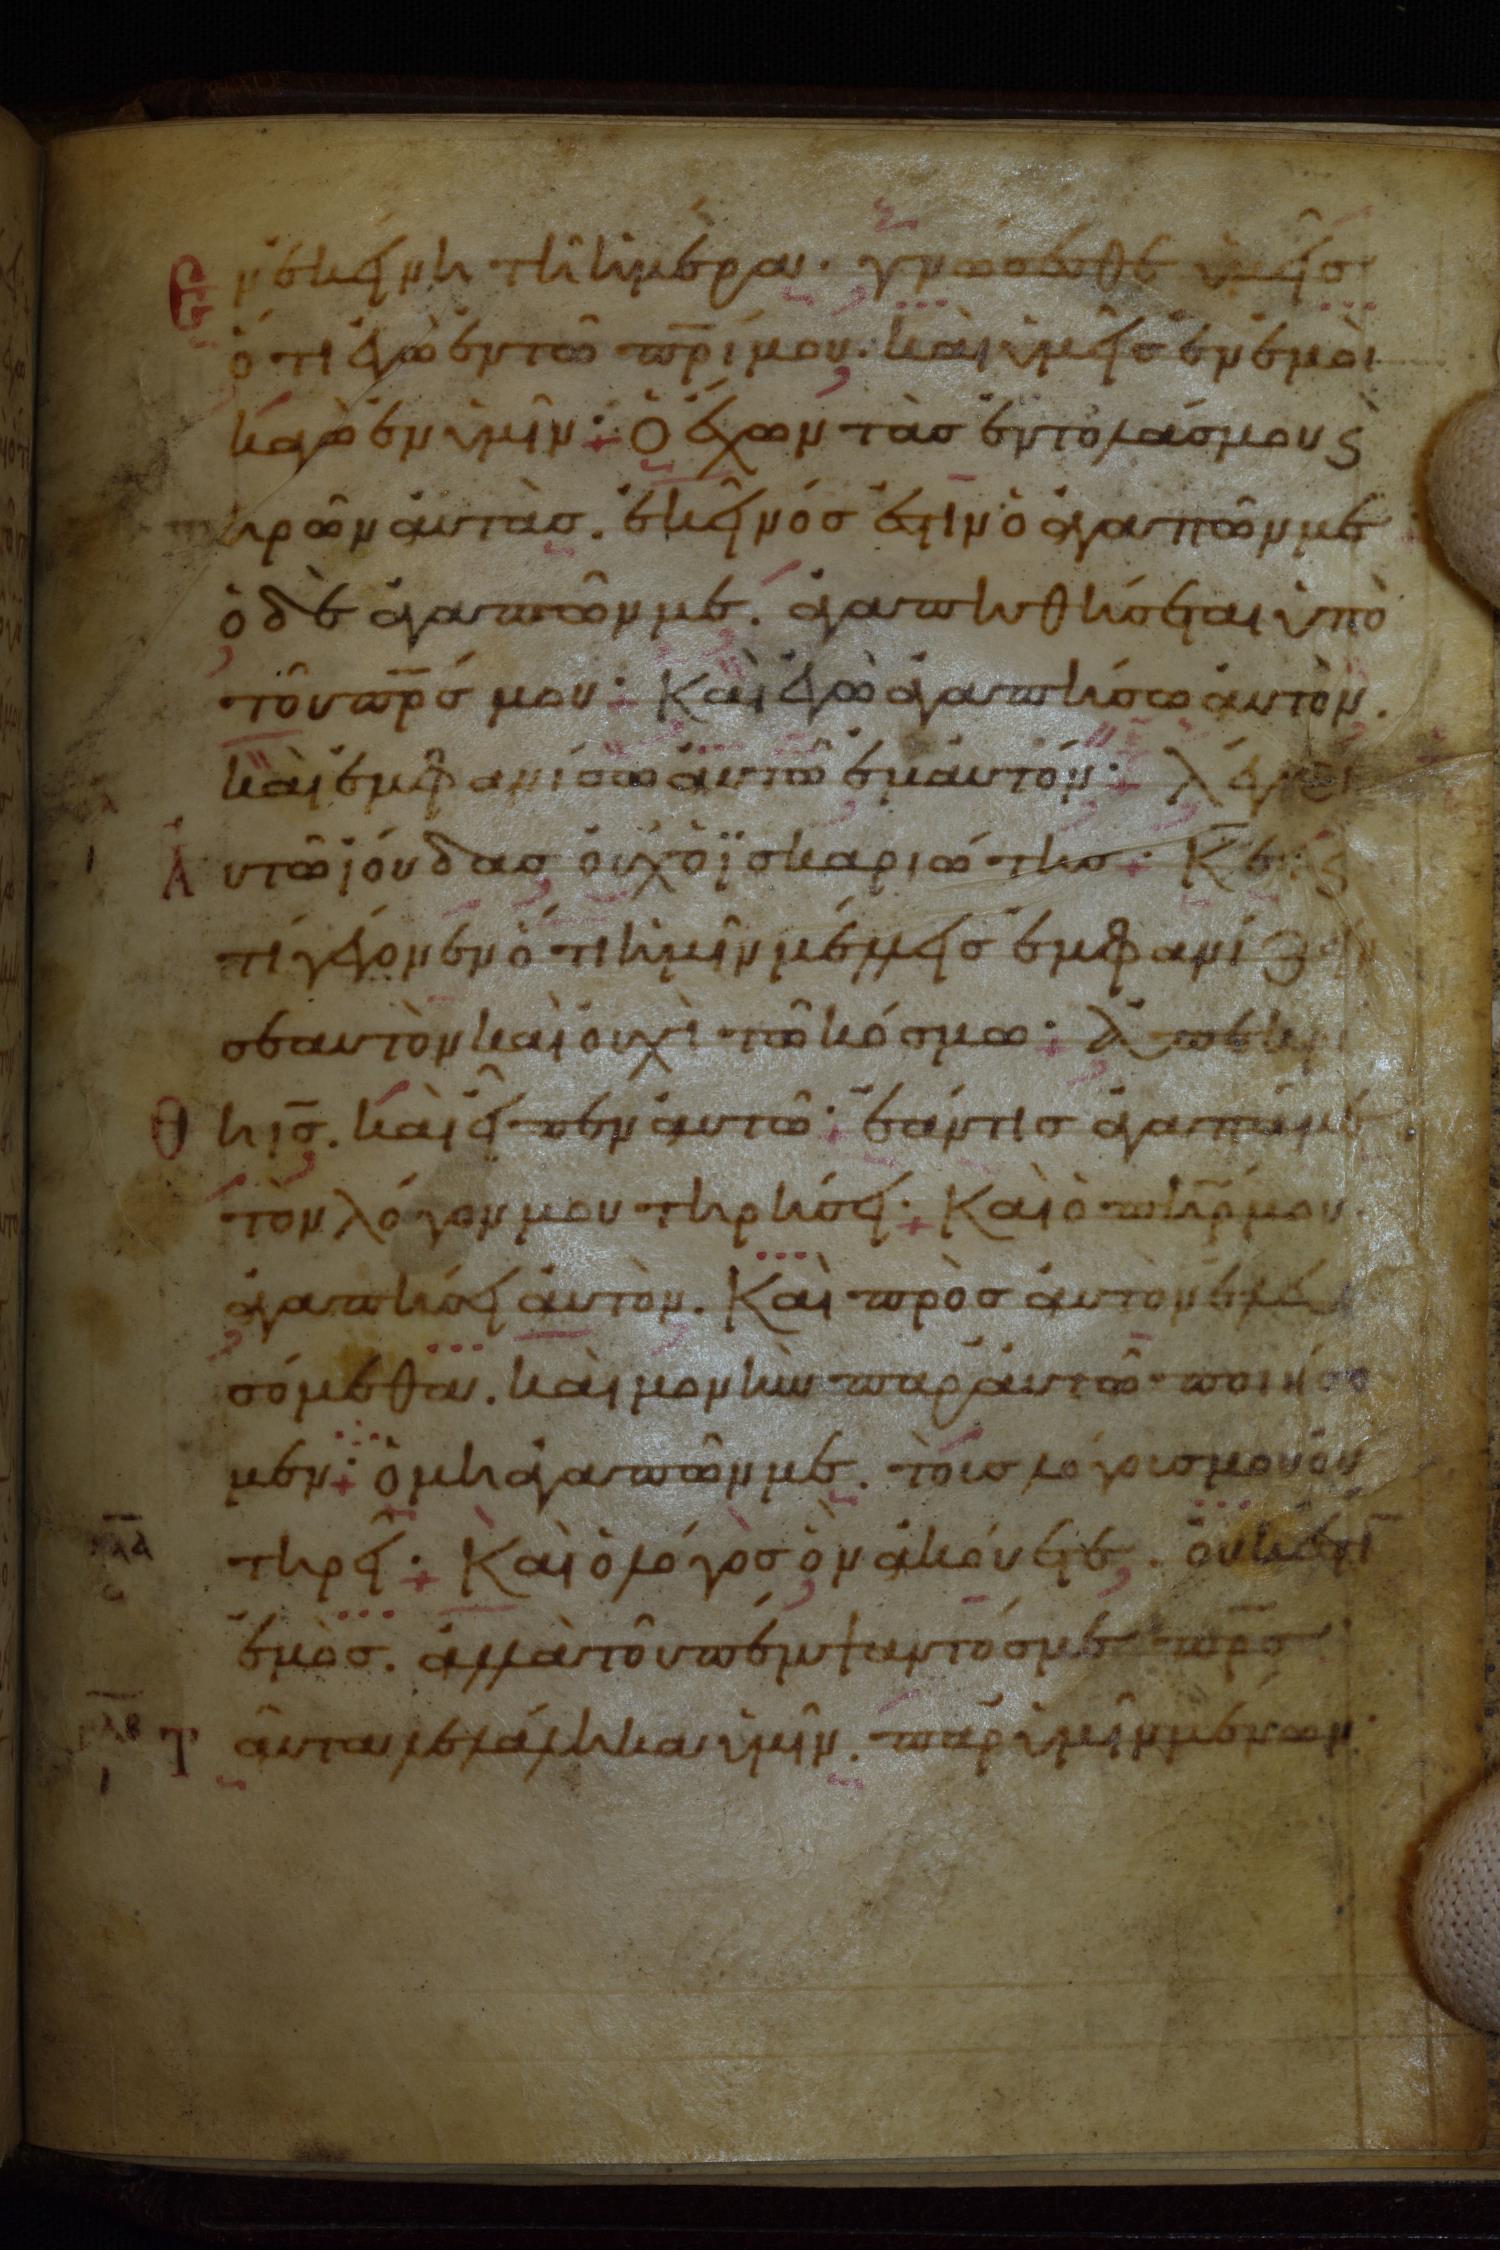 Ἐν ἐκείνη τῆ ἡμέρα· γνώσεσθε ὑμεῖσ
ὅτι ἐγὼ ἐν τῶ πρ̅ί μου· καὶ ὑμεῖσ ἐν ἐμοὶ
καγὼ ἐν ὑμῖν· Ὁ ἔχων τὰσ ἐντολάσ μου ϛ
τηρῶν αὐτὰσ. ἐκεῖνόσ ἐστιν ὁ ἀγαπῶν με
ὁ δὲ ἀγαπῶν με. ἀγαπηθήσεται ὑπὸ
τοῦ πρ̅σ μου· Καὶ ἐγὼ ἀγαπήσω αὐτὸν.
καὶ ἐμφανίσω αὐτῶ ἐμαυτόν· λέγει
Αυτῶ ϊούδασ οὐχ ὁ ϊσκαριώτησ· Κ̅ε ϛ
τί γέγονεν ὅτι ἡμῖν μέλλεισ ἐμφανίζειν
σεαυτὸν καὶ οὐχὶ τῶ κόσμω· ἀπεκρί
Θη ι̅σ. καὶ εἶπεν αὐτῶ· ἐάν τισ ἀγαπᾶ με
τὸν λόγον μου τηρήσει· Καὶ ὁ πη̅ρ μου
ἀγαπήσει αὐτὸν. Καὶ πρὸσ αὐτὸν ἐλευ
σόμεθα. καὶ μονὴν παρ αὐτῶ ποιήσο
μεν· ὁ μὴ ἀγαπῶν με. τοὺσ λόγουσ μου οὐ
τηρεῖ· Καὶ ὁ λόγοσ ὃν ἀκούετε. οὐκ ἔστι̅
ἐμὸσ. ἀλλὰ τοῦ πέμψαντόσ με πρ̅σ·
ρλα
Ταῦτα λελάληκα ὑμῖν. παρ ὑμῖν μένων·
ρλβ